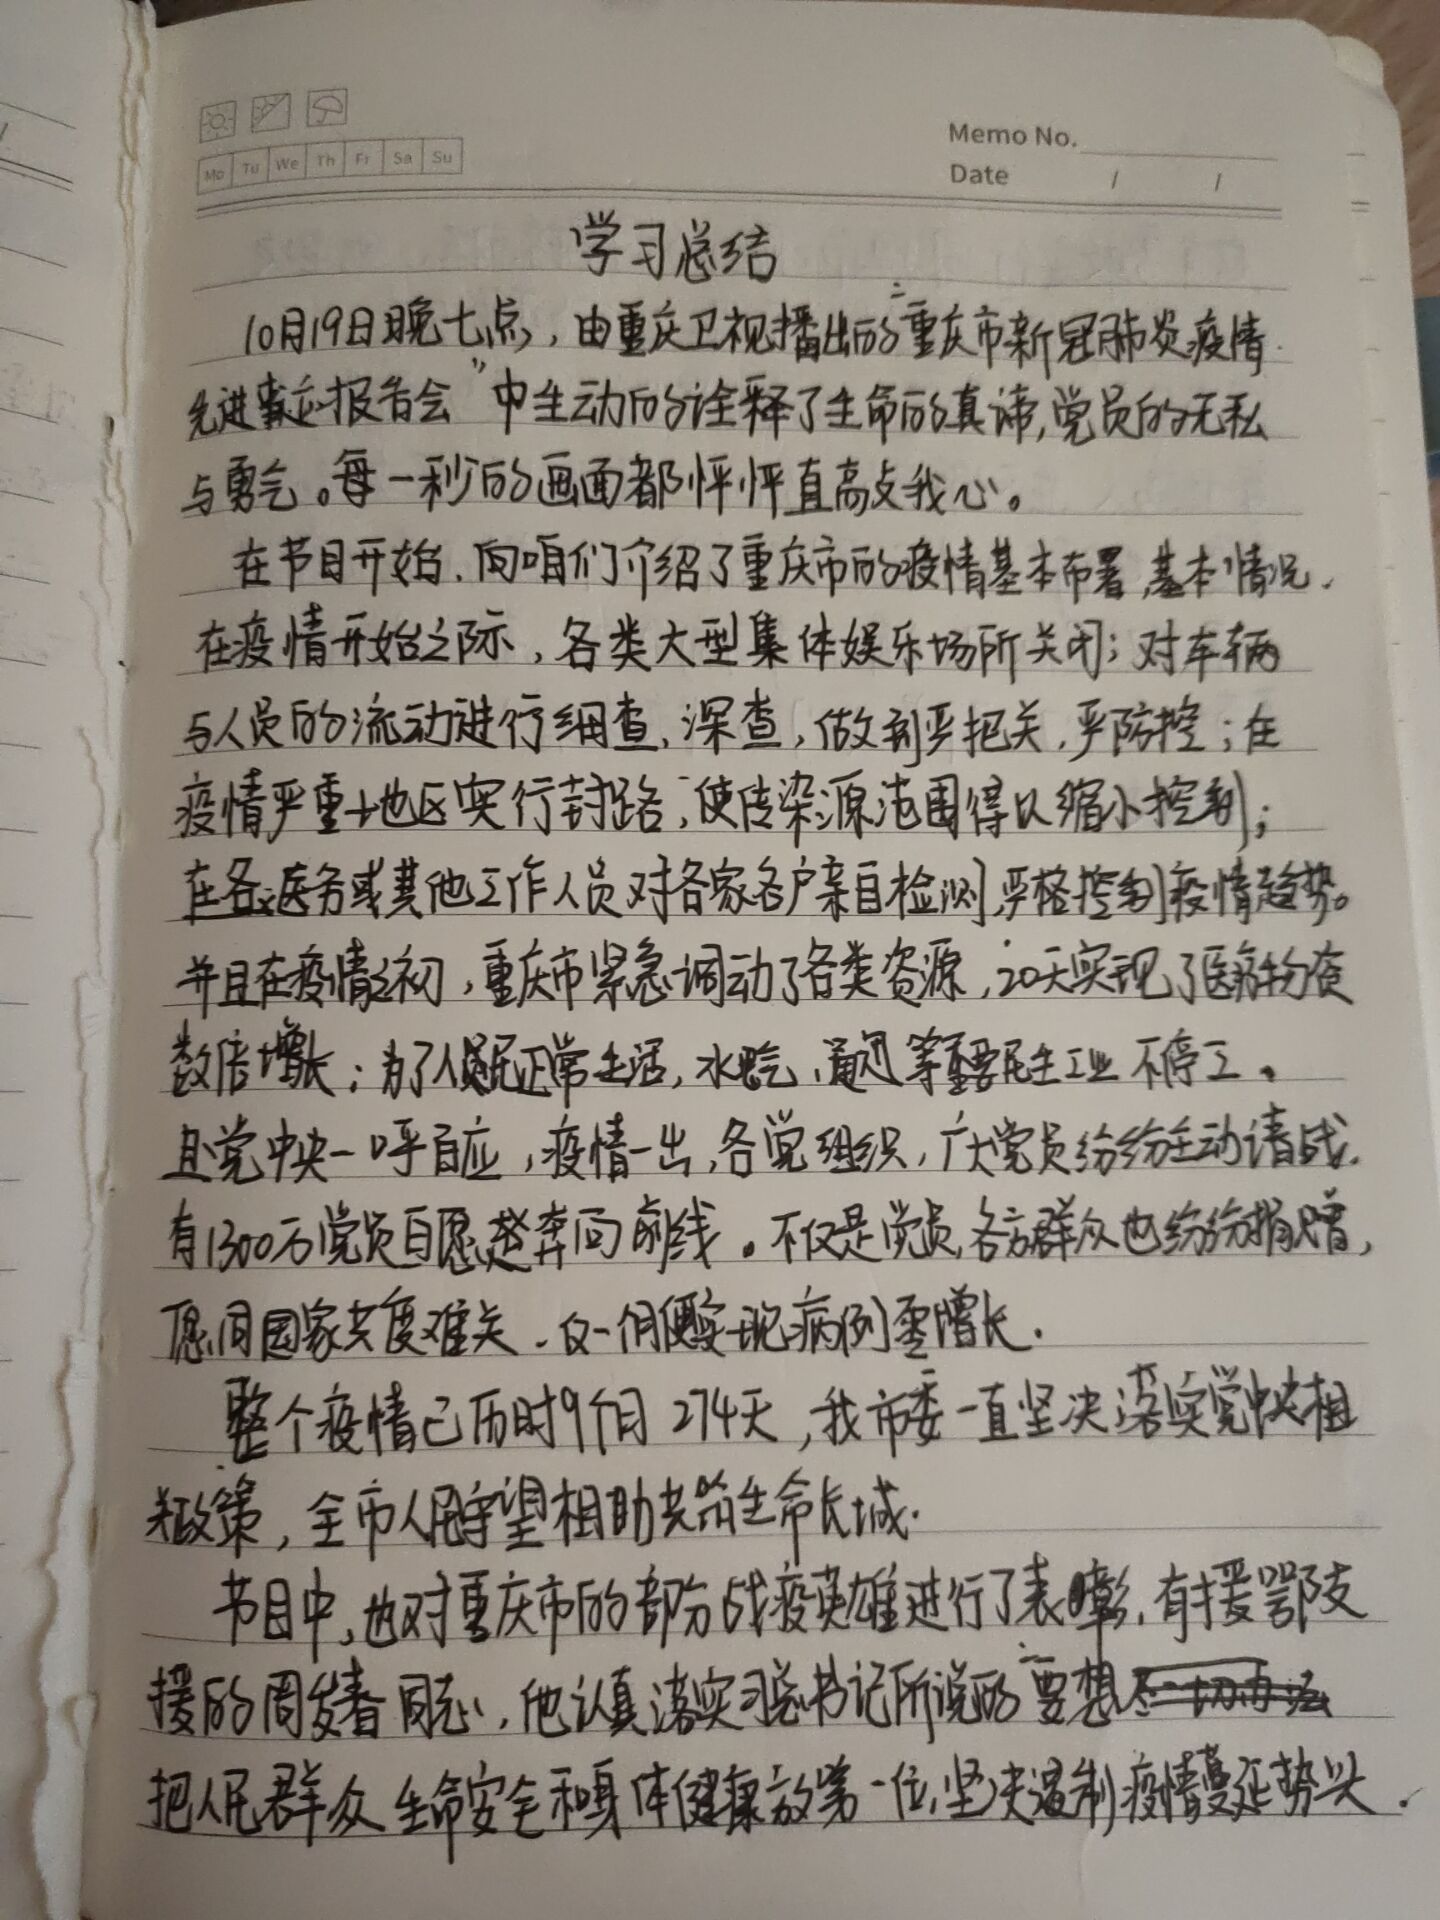 Mo Tu We Th Fr Sa Su
Memo No.
Date / /
学习总结
10月19日晚七点，由重庆卫视播出的“重庆市新冠肺炎疫情
先进事迹报告会”中生动的诠释了生命的真谛,党员的无私
与勇气。每一秒的画面都怦怦直敲我心。
在节目开始,向咱们介绍了重庆市的疫情基本布署,基本情况.
在疫情开始之际，各类大型集体娱乐场所关闭；对车辆
与人员的流动进行细查,深查,做到严把关,严防控；在
疫情严重地区实行封路,使传染源范围得以缩小控制；
在各医务或其他工作人员对各家各户亲自检测,严格控制疫情趋势。
并且在疫情之初,重庆市紧急调动了各类资源,20天实现了医疗物资
数倍增长；为了人民正常生活,水电气,通讯等重要民生工业不停工。
且党中央一呼百应,疫情一出,各党组织,广大党员纷纷主动请战.
有1300万党员自愿奔向前线。不仅是党员,各方群众也纷纷捐赠,
愿同国家共度难关.仅一个月便实现病例零增长.
整个疫情已历时9个月274天,我市委一直坚决落实党中央相
关政策,全市人民守望相助共筑生命长城.
节目中,也对重庆市的部分战疫英雄进行了表彰,有援鄂支
援的周发春同志,他认真落实习总书记所说的“要想
把人民群众生命安全和身体健康放第一位,坚决遏制疫情蔓延势头.